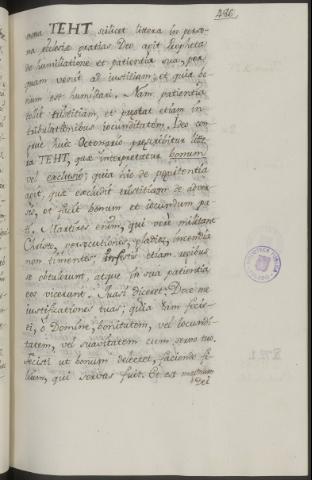 486.
nona TEHT scilicet littera in perso-
na plebis gratias Deo agit Propheta
de humiliatione et patientia qua, per
quam venit ad iustitiam, et quia bo-
num est humiliari. Nam patientia
tollit tristitiam, et portat etiam in
tribulationibus iucunditatem. Deo con-
grue huic Octonario praescribitur litte-
ra TEHT, quae interpretatur bonum
vel exclusio; quia hic de patientia
agit, quae excludit tristitiam de adver-
sis, et facit bonum et iucundum pa-
ti. Martires enim, qui vere militant
Christo, persecutiones, gladios, incendia
non timentes, infestis etiam regibus
se obtulerunt, atque in sua patientia
eos vicerunt. Quasi diceret: Doce me
iustificationes tuas; quia tam fecis-
ti, o Domine, bonitatem, vel iocundi-
tatem, vel suavitatem cum servo tuo,
fecisti ut bonum deleret, faciendo fi-
lium, qui servus fuit. Et est
Dei